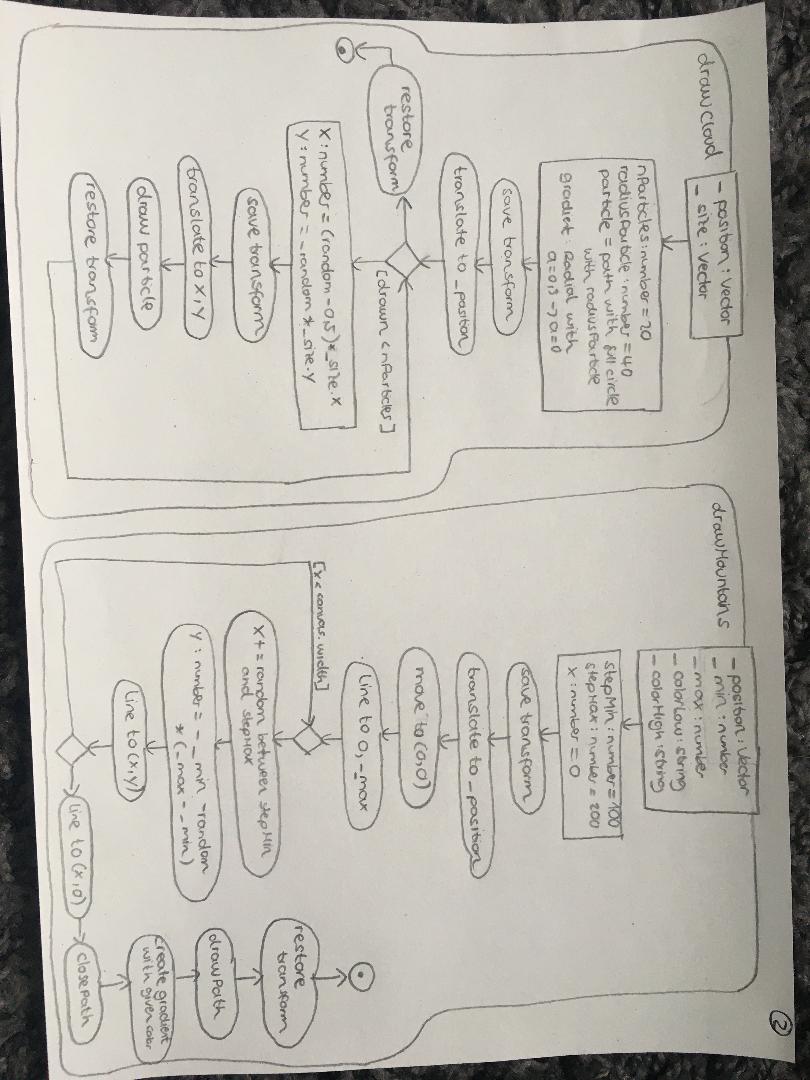 2
drawCloud
- position : Vector
- size : Vector
nParticles : number = 20
radiusParticle : number = 40
particle = path with full circle
with radiusParticle
gradient : Radial with
a=0,5 -> a=0
save transform
translate to _position
restore
transform
[drawn < nParticles]
X : number = (random - 0,5) * _size.x
Y : number = - random * _size.y
save transform
translate to x, y
draw particle
restore transform
drawMountains
- position : Vector
- min : number
- max : number
- colorLow : string
- colorHigh : string
stepMin : number = 100
stepMax : number = 200
x : number = 0
save transform
translate to _position
move to (0,0)
line to 0, -_max
[x < canvas.width]
X += random between stepMin
and stepMax
Y : number = - _min - random
* (_max - _min)
line to (x,y)
line to (x,0)
closePath
create gradient
with given color
drawPath
restore
transform